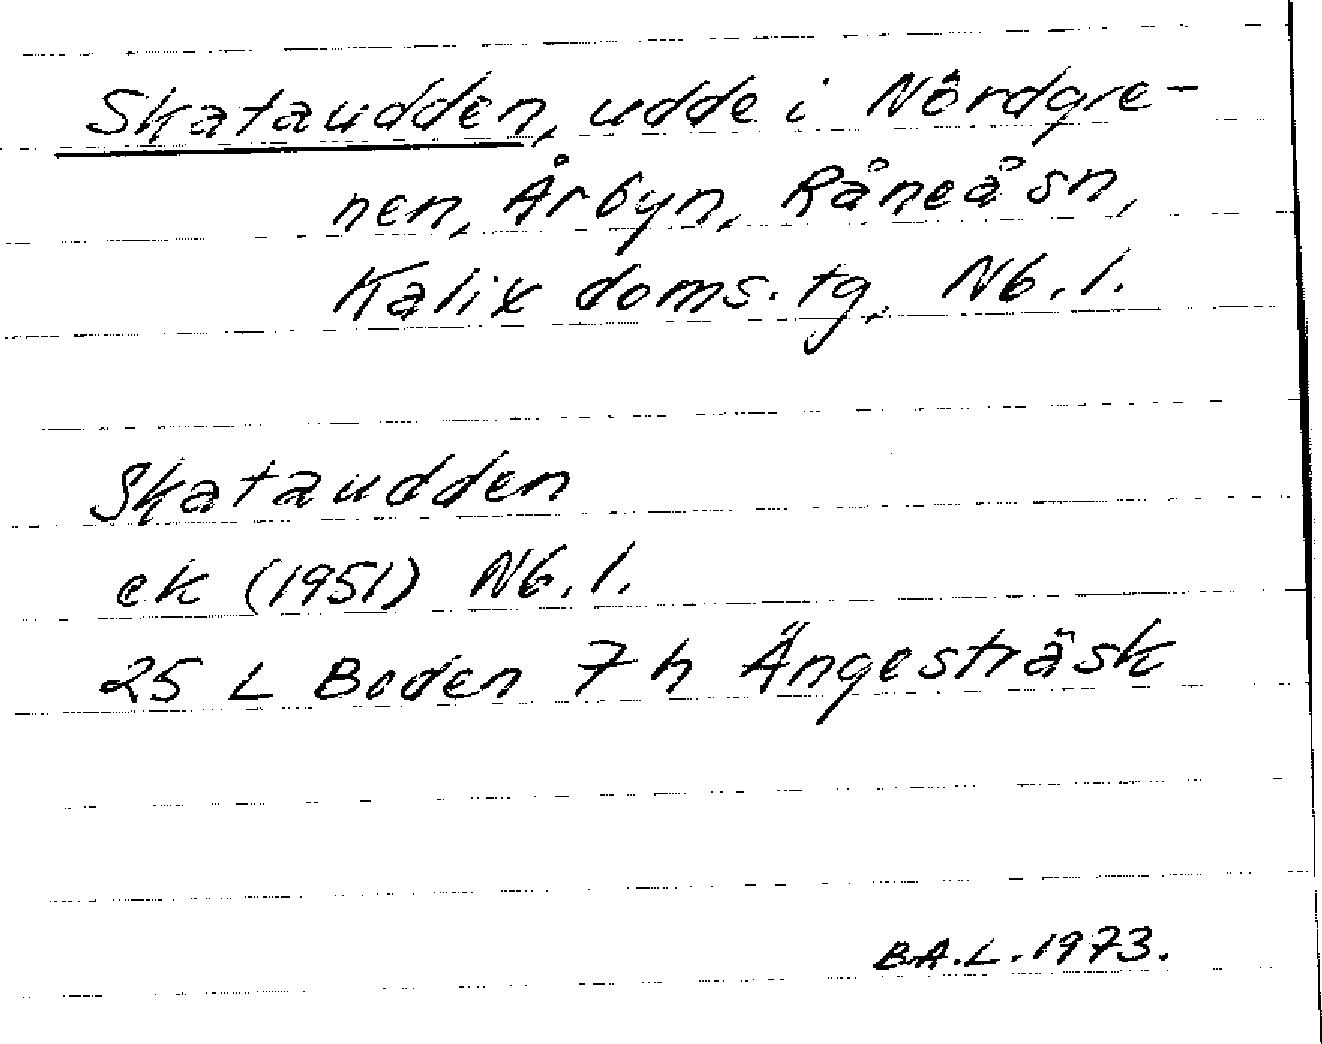 Skataudden, udde i Nördgre-
nen, Årbyn, Råneå sn,
Kalix doms. tg, Nb. l.
Skataudden
ek (1951) Nb. l.
25 L Boden 7 h Ängesträsk
B.A.L. 1973.